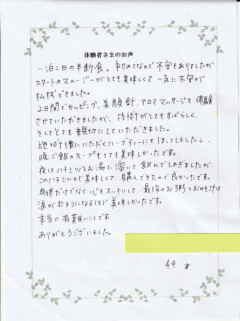 体験者さまのお声
一泊二日の半断食。初めてなので不安もありましたが
スタートのスムージーがとても美味しくて一気に不安が
払拭できました。
2日間でカッピング、美顔針、アロママッサージを体験
させていただきましたが、技術がとてもすばらしく、
そしてとても親切にしていただきました。
絶対を後にいただくハーブティーにもほっとしましたし、
晩ご飯のスープもとても美味しかったです。
夜はハチミツをお湯に溶いて飲んでしのぎましたが、
このハチミツが美味しくて購入できたので良かったです。
身体だけでなく心もスッキリして、最後のお粥とおみそ汁は
涙が出そうになるほど美味しかったです。
本当に有難いことです。
ありがとうございました。
44 才